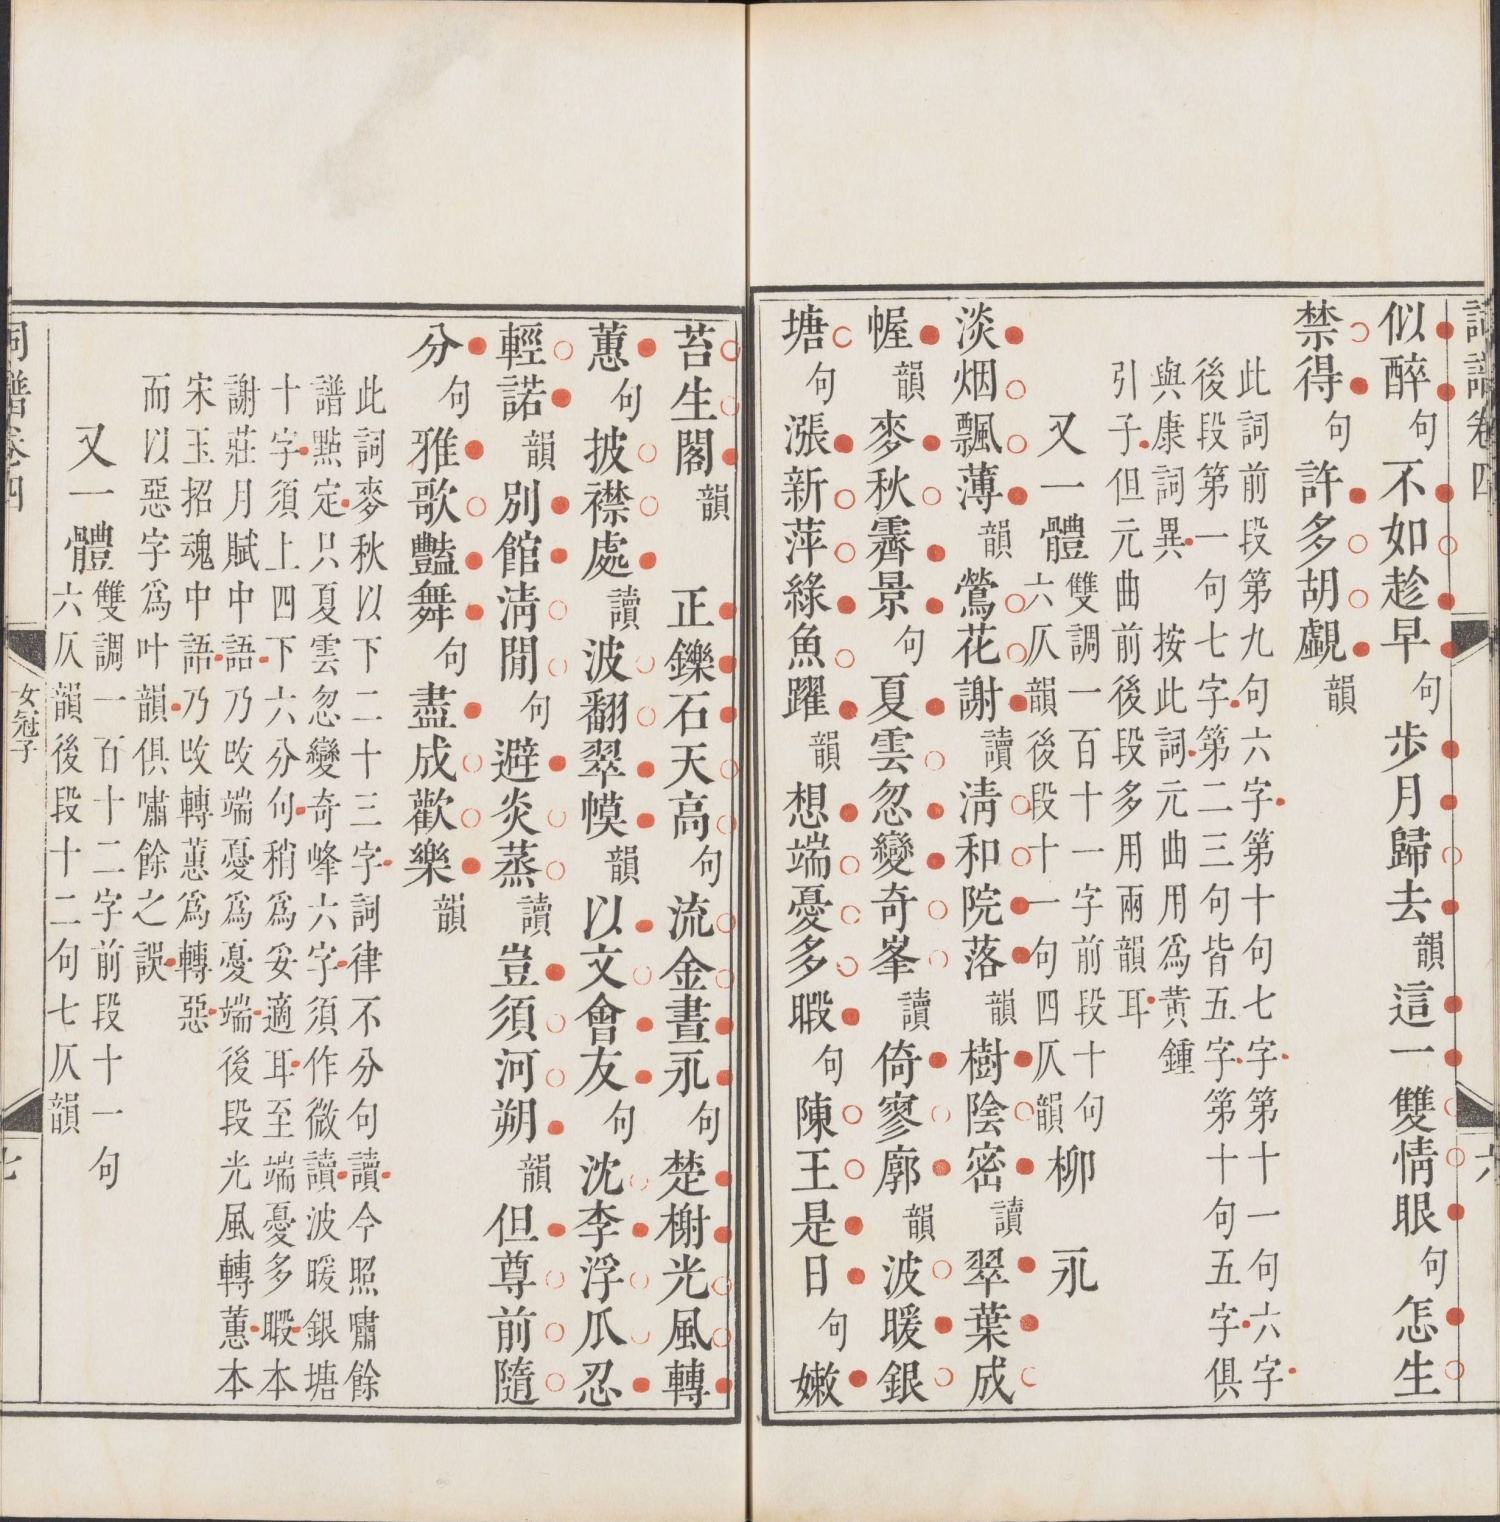 詞譜卷四
六
似醉句不如趁早句步月歸去韻這一雙情眼句怎生
禁得句許多胡覷韻
此詞前段第九句六字第十句七字第十一句六字
後段第一句七字第二三句皆五字第十句五字俱
與康詞異 按此詞元曲用爲黃鍾
引子但元曲前後段多用兩韻耳
又一體
雙調一百十一字前段十句
六仄韻後段十一句四仄韻
柳 永
淡烟飄薄韻鶯花謝讀清和院落韻樹陰密讀翠葉成
幄韻麥秋霽景句夏雲忽變奇峯讀倚寥廓韻波暖銀
塘句漲新萍綠魚躍韻想端憂多暇句陳王是日句嫩
苔生閣韻 正鑠石天高句流金晝永句楚榭光風轉
蕙句披襟處讀波翻翠幙韻以文會友句沈李浮瓜忍
輕諾韻別館清閒句避炎蒸讀豈須河朔韻但尊前隨
分句雅歌豔舞句盡成歡樂韻
此詞麥秋以下二十三字詞律不分句讀今照嘯餘
譜點定只夏雲忽變奇峰六字須作微讀波暖銀塘
十字須上四下六分句稍爲妥適耳至端憂多暇本
謝莊月賦中語乃攺端憂爲憂端後段光風轉蕙本
宋玉招魂中語乃攺轉蕙爲轉惡
而以惡字爲叶韻俱嘯餘之誤
又一體
雙調一百十二字前段十一句
六仄韻後段十二句七仄韻
詞譜卷四
女冠子
七